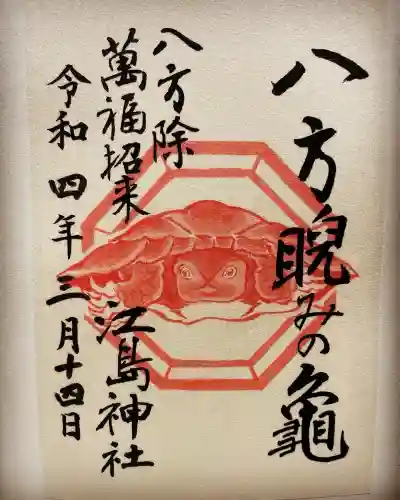 八方睨みの亀
八方除
萬福招来
江島神社
令和四年三月十四日